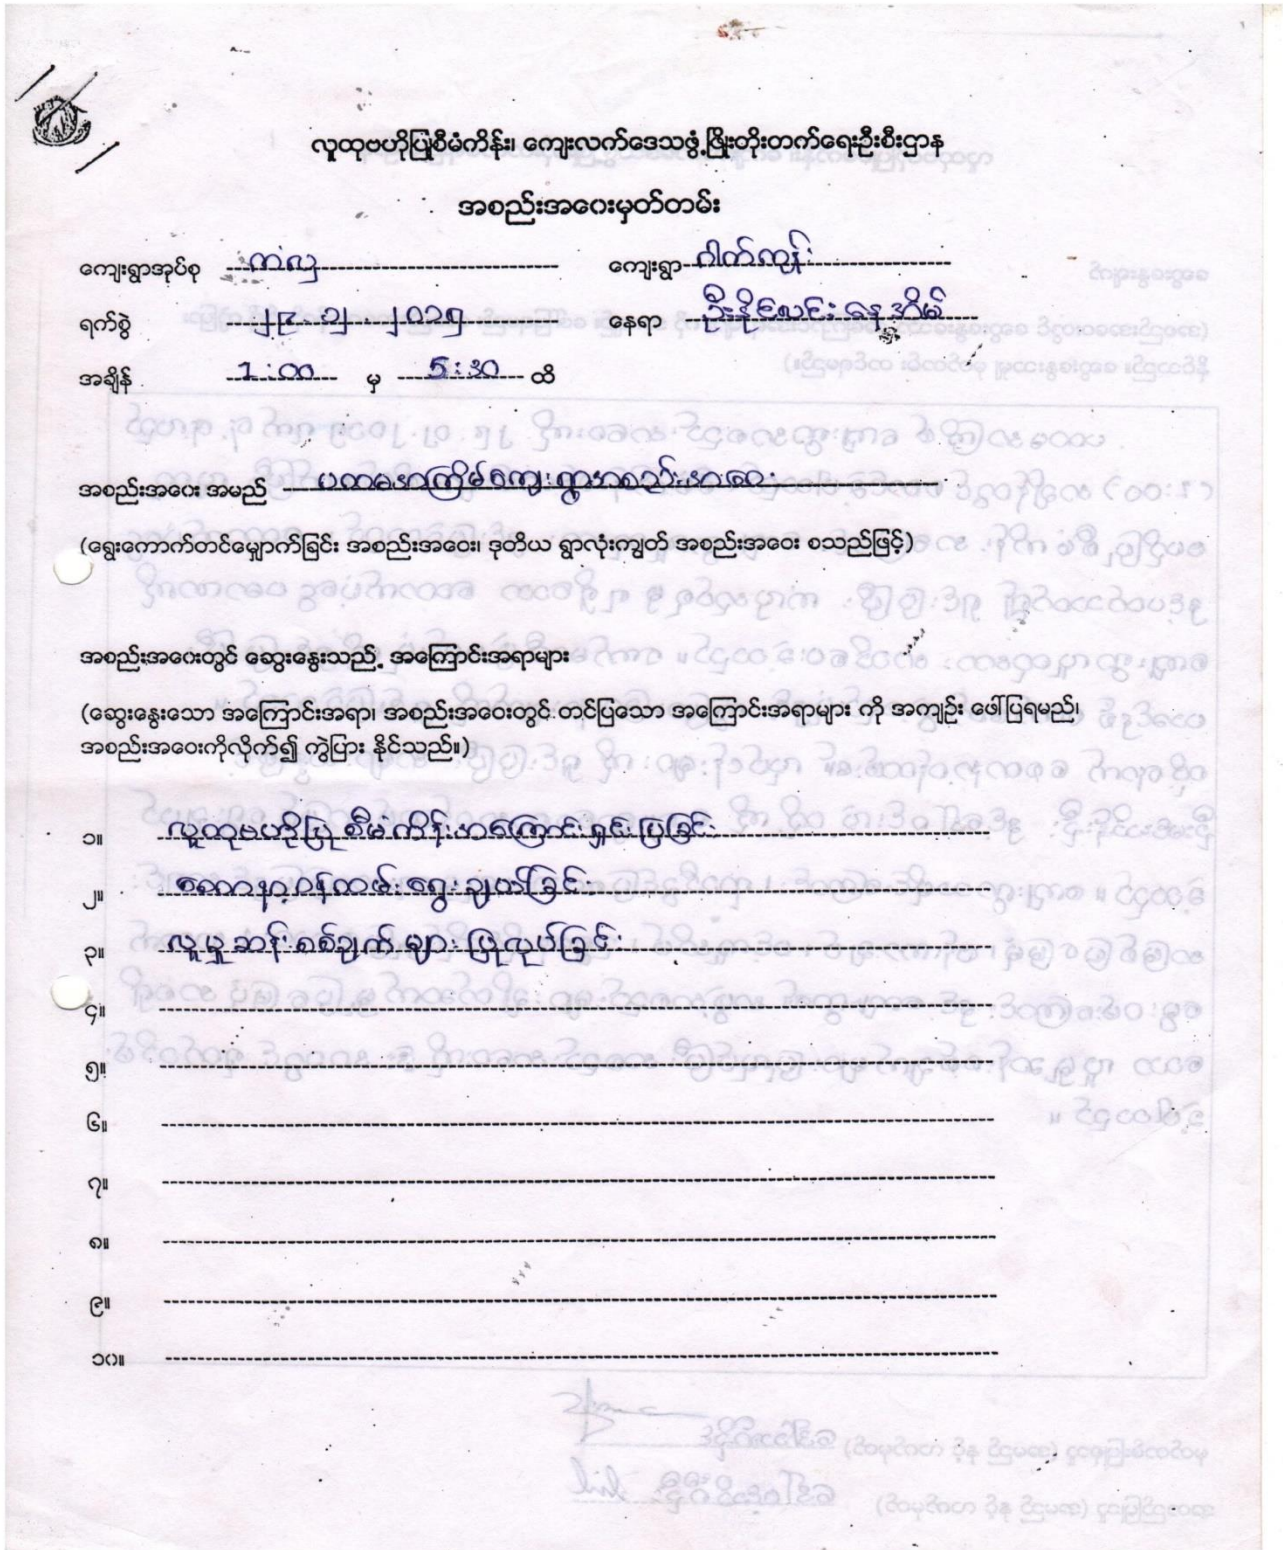 လူထုဗဟိုပြုစီမံကိန်း၊ ကျေးလက်ဒေသဖွံ့ဖြိုးတိုးတက်ရေးဦးစီးဌာန
အစည်းအဝေးမှတ်တမ်း
ကျေးရွာအုပ်စု ကလှ ကျေးရွာ ဂါတ်ကုန်း
ရက်စွဲ ၂၄.၁၂.၂၀၁၅ နေရာ ဦးနိုင်လင်းနေအိမ်
အချိန် 1:00 မှ 5:30 ထိ
အစည်းအဝေး အမည် ပထမအကြိမ်ကျေးရွာအစည်းအဝေး
(ရွေးကောက်တင်မြှောက်ခြင်း အစည်းအဝေး၊ ဒုတိယ ရွာလုံးကျွတ် အစည်းအဝေး စသည်ဖြင့်)
အစည်းအဝေးတွင် ဆွေးနွေးသည့် အကြောင်းအရာများ
(ဆွေးနွေးသော အကြောင်းအရာ၊ အစည်းအဝေးတွင် တင်ပြသော အကြောင်းအရာများ ကို အကျဉ်း ဖေါ်ပြရမည်၊
အစည်းအဝေးကိုလိုက်၍ ကွဲပြား နိုင်သည်။)
၁။ လူထုဗဟိုပြုစီမံကိန်းအကြောင်းရှင်းပြခြင်း
၂။ စေတနာ့ဝန်ထမ်းရွေးချယ်ခြင်း
၃။ လူမှုဆန်းစစ်ချက်များပြုလုပ်ခြင်း
၄။
၅။
၆။
၇။
၈။
၉။
၁၀။